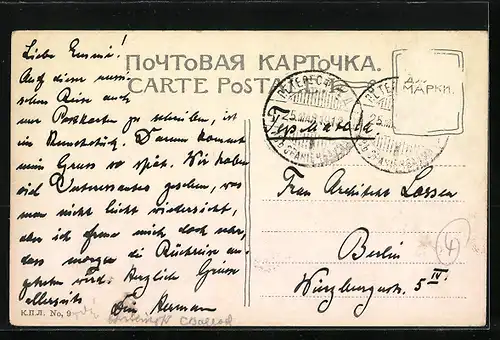 ПОЧТОВАЯ КАРТОЧКА.
CARTE POSTALE
ДЛЯ
МАРКИ.
Liebe Emmi!
Auf dieser russi-
schen Reise auch
nur Postkarten
zu schreiben, ist
ein Kunststück. Darum kommt
mein Gruss so spät. Wir haben
viel Interessantes gesehen, was
man nicht leicht wiedersieht,
aber ich freue mich doch sehr,
dass morgen die Rückreise an-
getreten wird. Herzliche Grüsse
allerseits
Dein Herman
Frau Architekt Lesser
Berlin
Würzburgerstr. 5 IV.
4
К.П.Л. No, 9